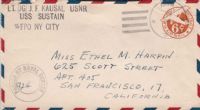 LT. JG. J. F. KAUSAL USNR
USS SUSTAIN
FPO NY CITY
6¢
MISS ETHEL M. HARPIN
625 SCOTT STREET
APT. 405
SAN FRANCISCO, 17
CALIFORNIA